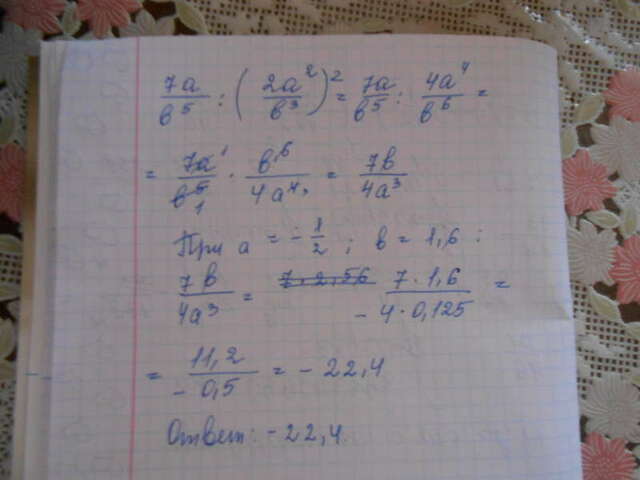 7a/в⁵ : (2a²/в³)² = 7a/в⁵ : 4a⁴/в⁶ =
= 7a/в⁵ · в⁶/4a⁴ = 7в/4a³
При a = -1/2 ; в = 1,6 :
7в/4a³ = 7·2,56 7·1,6/-4·0,125 =
= 11,2/-0,5 = -22,4
Ответ: -22,4.